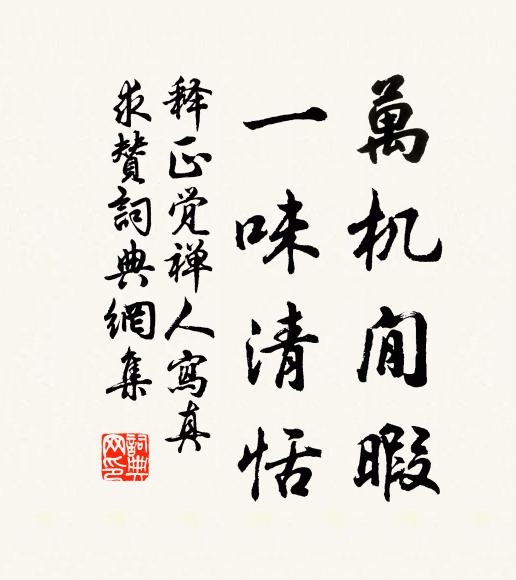 萬机閒暇
一味清恬
释正觉禅人寫真
求贊詞典網集
詞典網印